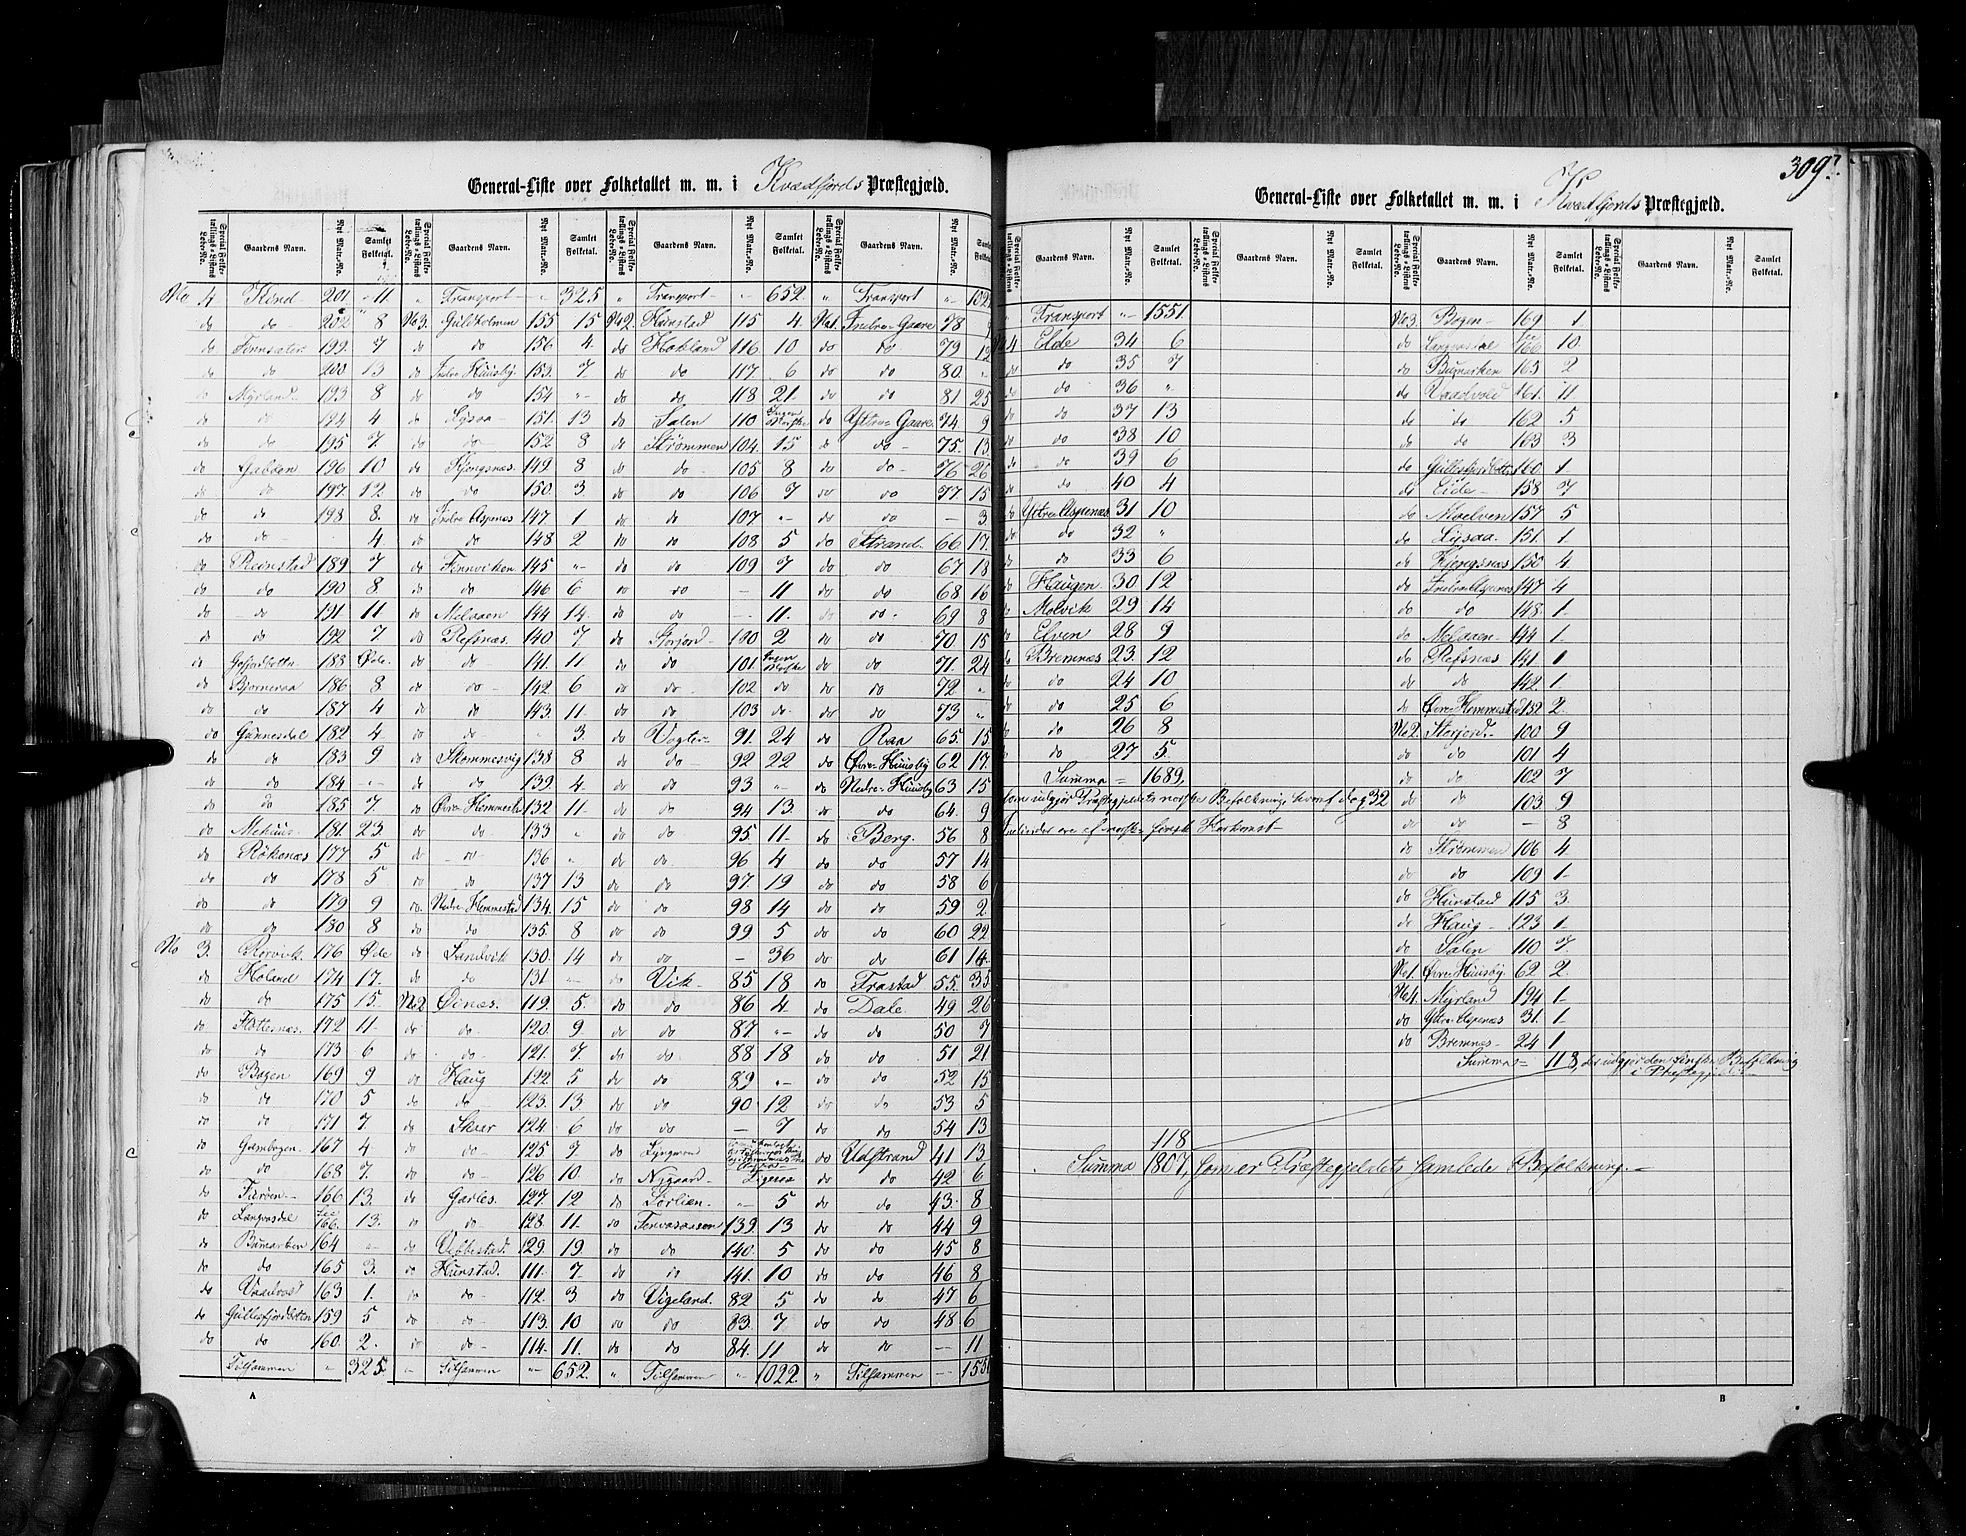 309.
General-Liste over Folketallet m. m. i Kvædfjords Præstegjæld.
Special Folketællings-Listens Løbe-No. Gaardens Navn. Nyt Matr.-No. Samlet Folketal.
No 4 Kind 201 11
do do 202 8
do Finnsæter 199. 7
do do 200 13
do Myrland 193 8
do do 194 4
do do 195 7
do 196 10
do do 197. 12
do do 198 8.
do do 4
do Reinstad 189 7
do do 190 8.
do do 191 11
do do 192 7
do Gofjordbotn 188 Øde.
do Bjorneraa 186 8.
do do 187 4
do Gunnesdal 182 4
do do 183 9
do do 184 "
do do 185 7.
do Mehuus 181. 23.
do Røkenæs 177 5
do do 178 5
do do 179 9
do do 180 8
No 3. Rørvik 176 Øde
do Holand 174 17.
do do 175 15.
do Flottenæs 172 11
do do 173 6
do Bogen 169 9
do do 170 5
do do 171 7.
do Grønbogen 167 4
do do 168 7.
do 166 13.
do Langvasdal 166. 13.
do Bumarken 164 "
do do 165 3.
do Vaadvold 163 1.
do Gullesfjordbotten 159 5
do do 160. 2.
Tilsammen " 325.
" Transport " 325
No 3. Guldholmen 155 15
do do 156 4.
do Indre Huusby. 153. 7
do do 154 "
do Ligsaa 151. 13
do do 152 8
do Kjengsnæs. 149. 8
do do 150. 3.
do Indre Aspenæs 147 1
do do 148. 2
do Finnviken 145 "
do do 146 6
do Melaaen 144 14.
do Refsnæs. 140 7
do do 141. 11
do do 142. 6
do do 143. 11.
do do " 3
do Skommesvig 138 8
do do 139 4.
do Øvre Hemmestad 132 11.
do do 133 "
do do 136 "
do do 137. 13
do. Nedre Hemmestad 134. 15
do do 135. 8
do Sandvik 130. 14
do do 131 "
No 2 Øinæs. 119. 5.
do do 120. 9
do do 121. 7
do Haug 122. 5
do do 123. 13.
do Skjær 124 6
do do 125 7.
do do 126 10.
do Garles. 127. 12
do do 128. 11.
do Vebbestad. 129. 19.
do Hunstad. 111. 7.
do do 112. 3
do do 113. 10
do do 114. 11.
" Tilsammen " 652.
" Transport " 652.
No 2. Hunstad 115 4.
do Hokland 116 10
do do 117. 6
do do 118 21.
do Salen 110 Ingen Norske
do Strømmen 104. 15
do do 105 8
do do 106 7
do do 107 "
do do 108. 5
do do 109 7
do do — 11
do do — 11.
do Storjord 100 2
do do 101. Ingen Norske
do do 102 do
do do 103 do
do Vogter 91. 24
do do 92 22
do do 93 "
do do 94 13.
do do 95. 11.
do do 96 4
do do 97. 19
do do 98 14
do do 99 5
do do — 36
do Vik 85 18
do do 86 4.
do do 87 "
do do 88 18
do do 89 "
do do 90 12
do — 7
do Lyngmoen
do Nygaard
do Sørlien " 5
do 139. 13
do do 140. 5
do do 141. 10
do Vigeland. 82 5
do do 83. 7
do do 84. 11
" Tilsammen " 1022.
" Transport "
No 1. Indre Gaare 78
do do 79
do do 80. "
do do 81 25
do Ystre Gaare 74 9
do do 75. 13
do do 76 26
do do 77 15
do — 3.
do Strand. 66 17.
do do 67 18
do do 68 16
do do 69 8
do do 70 15
do do 71. 24
do do 72 "
do do 73 "
do Raa 65. 15
do Øvre Huusby 62 17.
do Nedre Huusby 63 15
do do 64. 9
do Berg. 56 8
do do 57 14
do do 58 6
do do 59 2.
do do 60 22
do do 61 14.
do Trastad 55. 35
do Dale 49 26
do do 50 7
do do 51 21
do do 52 15
do do 53 5
do do 54 13
do Udstrand 41 13
do do 42 6
do do 43. 8
do do 44 9
do do 45 8
do do 46 8
do do 47 6
do do 48 6
do do — 11
" Tilsammen — 1551
A
General-Liste over Folketallet m. m. i Kvædfjords Præstegjæld.
Gaardens Navn. Nyt Matr.-No. Samlet Folketal.
Transport " 1551.
Elde 34 6
do 35 7
do 36 "
do 37 13
do 38 10
do 39 6
do 40 4
Ystre Aspenæs 31 10
do 32 "
do 33 6
Haugen 30 12
Molvik 29 14
Elven 28 9
Bremnæs 23. 12
do 24 10
do 25 6
do 26 8
do 27 5.
Summa = 1689.
som udgjør Præstegjeldets norske Befolkning, hvoraf dog 32
Individer ere af norsk-finsk Herkomst
No 3. Bogen 169 1.
do Langvasdal 166 10.
do Bumarken 165 2
do Vaadvold 161. 11
do do 162 5
do do 163 3
do Gullesfjordbotten 160. 1.
do Eide 158 7
do Moelven 157 5
do Ligsaa. 151. 1.
do Kjengsnæs 150 4
do Indre Aspenæs 147 4
do do 148. 1.
do Melaaen 144 1.
do Refsnæs 141 1
do do 142. 1
do Øvre Hemmestad 132 2.
No 2. Storjord. 100 9
do do 101 4
do do 102 7
do do 103 9
do do — 8
do Strømmen 106 4
do do 109 1.
do Hunstad 115 3.
do Haug 123 1.
do Salen 110 7
No 1. Øvre Huusby. 62 2.
No 4. Myrland 194 1.
do Ystre Aspenæs 31. 1.
do Bremnes 24 1
Summa = 118, der udgjør den finske Befolkning
i Præstegjeldet
118
Summa 1807, som er Præstegjeldets samlede Befolkning.
B